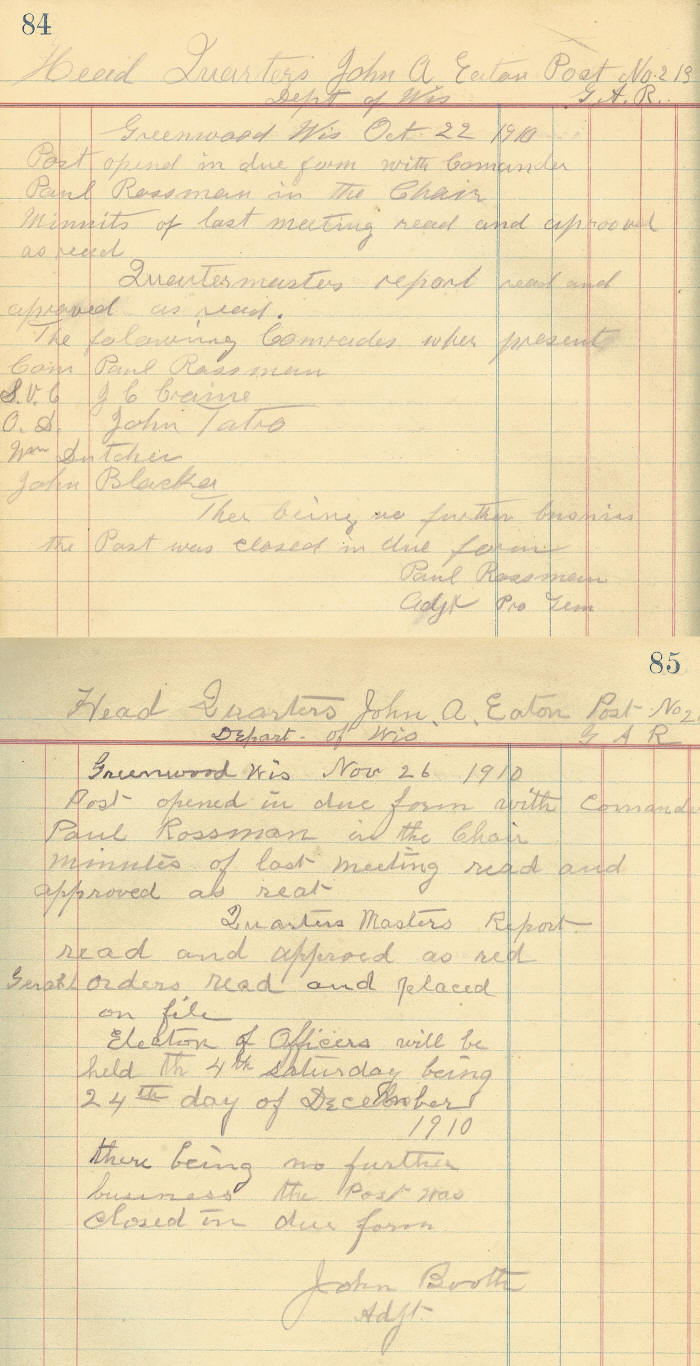 84
Head Quarters John A Eaton Post No. 213
Dept of Wis G. A. R.
Greenwood Wis Oct. 22 1910
Post opend in due form with Comander
Paul Rossman in the Chair
Minnits of last meeting read and aprooved
as read
Quartermasters report read and
aproved as read.
The folowing Comrades wher present
Com Paul Rossman
S.V.C J C Craine
O. D. John Tatro
Wm Dutcher
John Blacker
Ther being no further busniss
the Post was closed in due form
Paul Rossman
Adjt Pro Tem
85
Head Quarters John. A. Eaton Post No 2
Depart. of Wis G A R
Greenwood Wis Nov 26 1910
Post opened in due form with Comande
Paul Rossman in the Chair
minutes of last meeting read and
approved as reat
Quarters Masters Report
read and approed as red
orders read and placed
on file
Electon of Officers will be
held th 4th Saturday being
24th day of December
1910
there being no further
business the Post was
closed in due form
John Booth
Adjt.